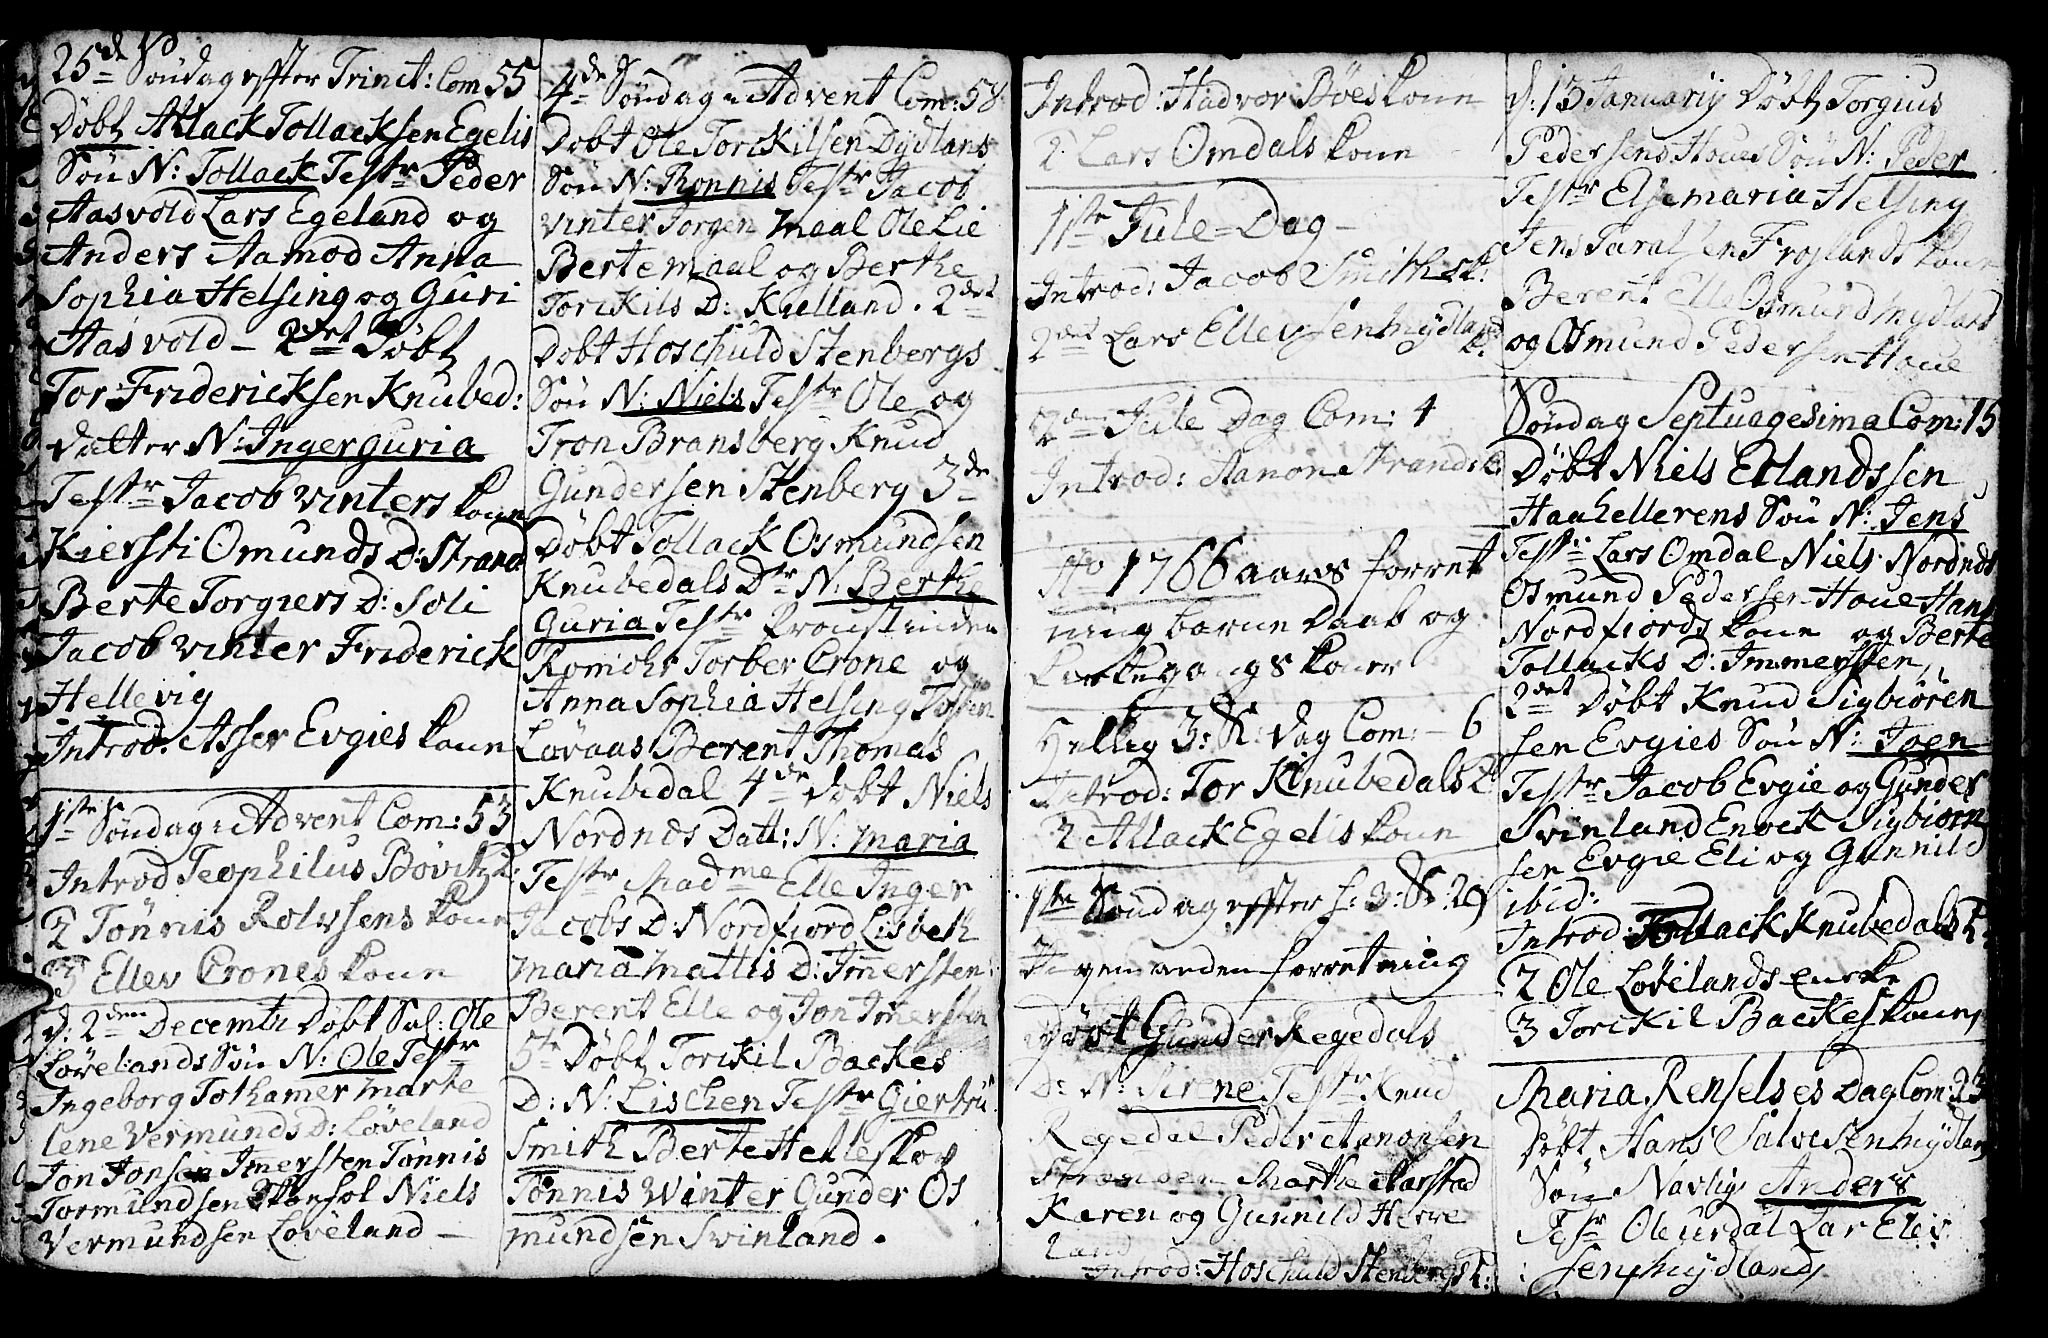 25de Søndag effter Trinit: Com 55
Døbt Atlack Tollacksen Egelis
Søn N: Tollack Testr Peder
Aasvold Lars Egeland og
Anders Aamod Anna
Sophia Helsing og Guri
Aasvold – 2det Døbt
Tor Fridericksen Knubed:
datter N: Inger guria
Testr Jacob vinters kone
Kiersti Omunds D: Strand
Berte Torgiers D: Soli
Jacob vinter Friderick
Hellevig
Introd: Asser Evgies kone
1ste Søndag: Advent Com: 53
Introd Teophilus Bøvitz k:
2 Tønnis Rolvsens kone
3 Ellev Crones kone
d: 2den Decembr Døbt Sal: Ole
Løvelands Søn N: Ole Testr
Ingeborg Tothamer Marte
lene Vermunds D: Løveland
Jon Jonsen Imersten Tønnis
Tormundsen Niels
Vermundsen Løveland –
4de Søndag: Advent Com: 58
Døbt Ole Torckilsen Dydlans
Søn N: Rønnis Testr Jacob
vinter Jørgen Maal Ole Lie
Berte Maal og Berthe
Torckils D: Kielland. 2det
Døbt Hoschuld Stenbergs
Søn N: Niels Testr Ole og
Tron Bransberg Knud
Gundersen Stenberg 3de
Døbt Tollack Osmundsen
Knubedals Dtr N: Berthe
Guria Testr Proustinden
Romohr Torber Crone og
Anna Sophia Helsing
Løvaas Berent Thomas
Knubedal 4de døbt Niels
Nordnes Datt: N: Maria
Testr Madme Elle Inger
Jacobs D: Nordfiord Lisbeth
Maria Mattis D: Imersten:
Berent Elle og Jon Imersten
5te Døbt Torckil Backes
D: N: Lischen Testr Giertru
Smith Berte Helleskov
Tønnis Winter Gunder Os
mundsen Svinland.
Introd: Hadvor Bøes kone
2 Lars Omdals kone
1ste Jule=Dag –
Introd: Jacob Smiths k:
2det Lars Ellevsen hydland
k:
2den Jule Dag Com: 4
Introd: Aanon Strands k:
Ao 1766 aars forret
ning barne Daab og
kirkegangs koner
Hellig 3: K: dag Com: – 6
Introd: Tor Knubedals k
2 Atlack Egelis kone
1ste Søndag effter h: 3: K: 29
Ingen anden forretning
Døbt Gunder Regedals
D: N: Sirene Testr Knud
Regedal Peder Aanonsen
Stranden Marthe Aarstad
Karen og Gunnild Herre
land
Introd: Hoschuld Stenbergs k:
d: 13 Januarij Døbt Torgius
Pedersens Houes Søn N: Peder
Testr Else maria Helsing
Jens Taralsen Frøylands kone
Berent Elle Osmund Mydland
og Osmund Pedersen Houe
Søndag Septuagesima Com: 15
Døbt Niels Erlandssen
Haahellerens Søn N: Jens
Testr Lars Omdal Niels Nordnes
Osmund Pedersen Houe Hans
Nordfiords kone og Berte
Tollacks D: Immersten
2det Døbt Knud Sigbiøren
sen Evgies Søn N: Joen
Testr Jacob Evgie og Gunder
Svinland Envck Sigbiørn
sen Evgie Eli og Gunnild
ibid:
Introd: Tollack Knubedals k:
2 Ole Løvelands Encke
3 Torckil Backes kone
Maria Renselses Dag Com: 23
Døbt Hans Salvesen hydland
Søn Navlig Anders
Testr Ole urdal Lar Elev
sen hydland